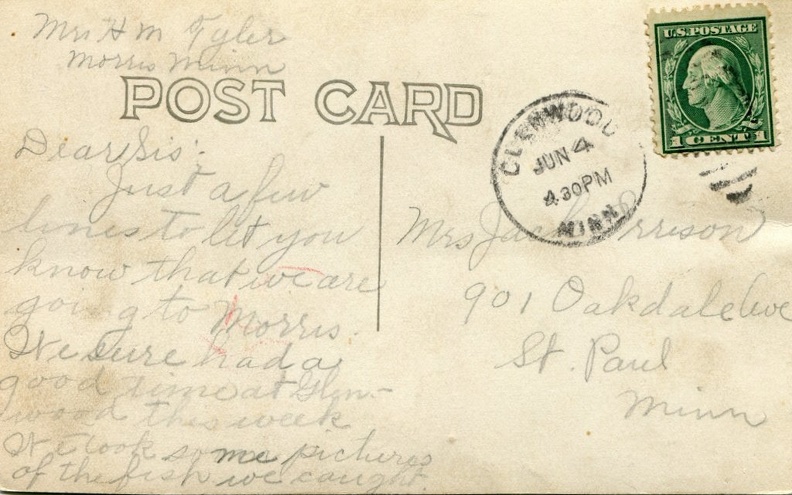 Mrs H M Tyler
Morris Minn
POST CARD
U.S. POSTAGE
1 CENT 1
GLENWOOD
JUN 4
4 30 PM
MINN
Dear Sis:-
Just a few
lines to let you
know that we are
going to Morris.
We sure had a
good time at Glen-
wood this week
We took some pictures
of the fish we caught.
Mrs Jack Morrison
901 Oakdale Ave
St. Paul
Minn